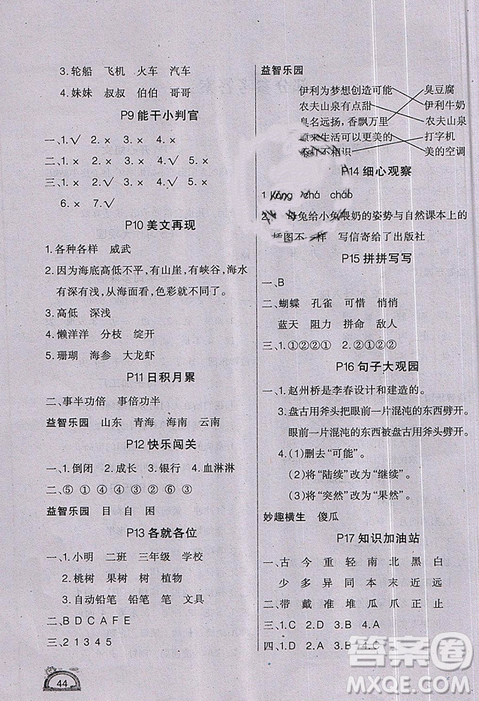 3. 轮船 飞机 火车 汽车
4. 妹妹 叔叔 伯伯 哥哥
P9 能干小判官
一、1. √ 2. × 3. × 4. × 5. ×
6. × 7. × 8. √
P10 美文再现
1. 各种各样 威武
2. 因为海底高低不平,有山崖,有峡谷,海水
有深有浅,从海面看,色彩就不同了。
3. 高低 深浅
4. 懒洋洋 分枝 绽开
5. 珊瑚 海参 大龙虾
P11 日积月累
二、事半功倍 事半功倍
益智乐园 山东 青海 海南 云南
P12 快乐闯关
一、1. 倒闭 2. 成长 3. 银行 4. 血淋淋
二、⑤ ① ④ ③ ② ⑥
益智乐园 目 自 困
P13 各就各位
一、1. 小明 二班 三年级 学校
2. 桃树 果树 树 植物
3. 自动铅笔 铅笔 笔 文具
二、B D C A F E
三、2 1 3 4 5
44
益智乐园
伊利为梦想创造可能 臭豆腐
农夫山泉有点甜 伊利牛奶
臭名远扬,香飘万里 农夫山泉
原来生活可以更美的 打字机
不 相识 美的空调
P14 细心观察
1. zhá chāo
兔给小兔喂奶的姿势与自然课本上的
插图不一样 写信寄给了出版社
P15 拼拼写写
一、B
二、蝴蝶 孔雀 可惜 悄悄
蓝天 阻力 拼命 敌人
三、①②①② ①②②①
P16 句子大观园
一、1. 赵州桥是李春设计和建造的。
2. 盘古用斧头把眼前一片混沌的东西劈开。
眼前一片混沌的东西被盘古用斧头劈开。
4. (1)删去“可能”。
(2)将“陆续”改为“继续”。
(3)将“突然”改为“果然”。
妙趣横生 傻瓜
P17 知识加油站
一、古 今 重 轻 南 北 黑 白
少 多 异 同 本 末 近 远
二、带 戴 准 堆 瓜 爪 正 止
三、1. C 2. A 3. B
四、1. D 2. A
答案圈
MXQE.COM